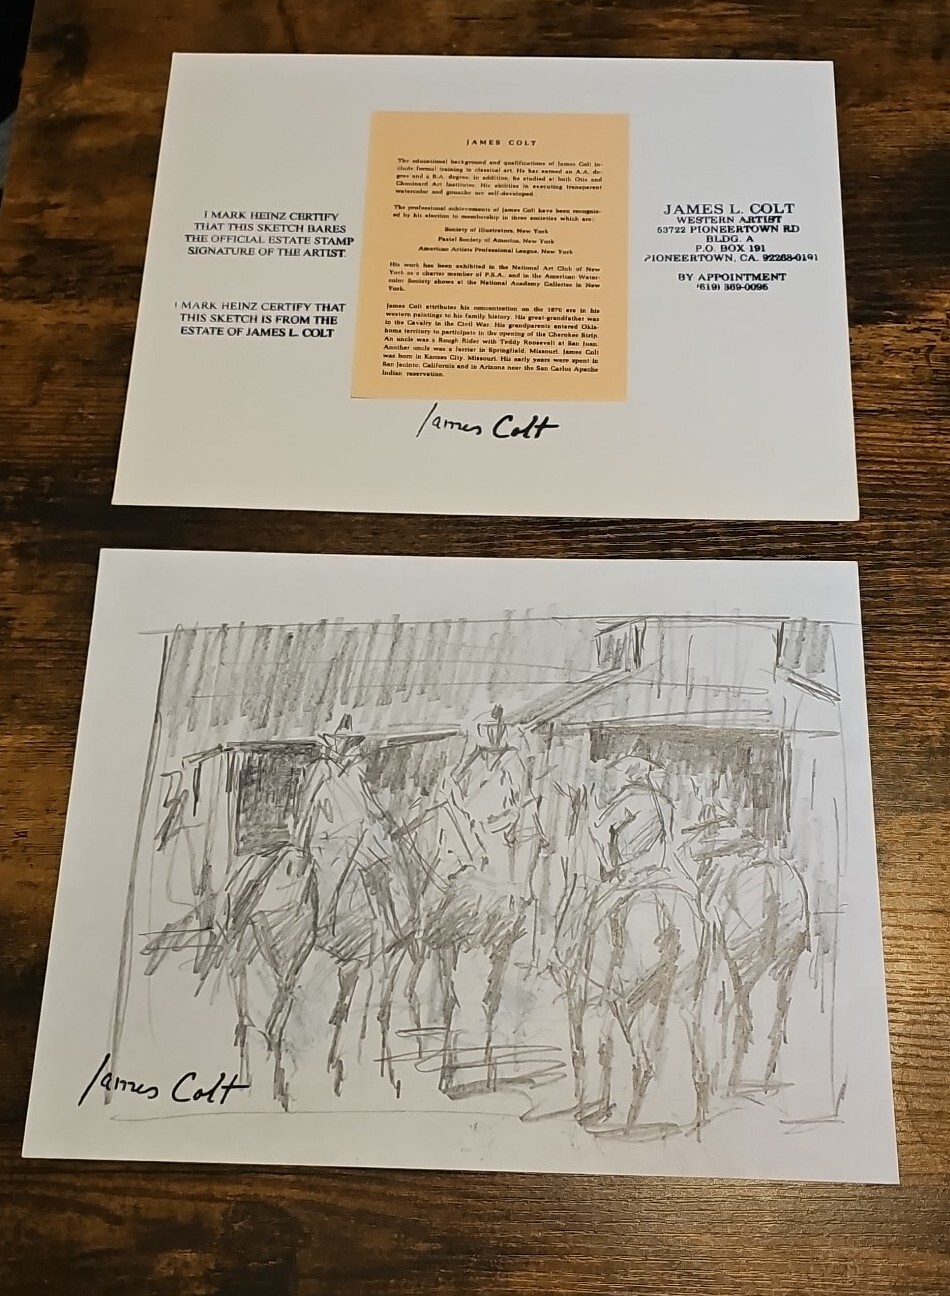 I MARK HEINZ CERTIFY
THAT THIS SKETCH BARES
THE OFFICIAL ESTATE STAMP
SIGNATURE OF THE ARTIST.
I MARK HEINZ CERTIFY THAT
THIS SKETCH IS FROM THE
ESTATE OF JAMES L. COLT
JAMES COLT
The educational background and qualifications of James Colt in-
clude formal training in classical art. He has earned an A.A. de-
gree and a B.A. degree. In addition, he studied at both Otis and
Chouinard Art Institutes. His abilities in executing transparent
watercolor and gouache are self-developed.
The professional achievements of James Colt have been recogniz-
ed by his election to membership in three societies which are:
Society of Illustrators, New York
Pastel Society of America, New York
American Artists Professional League, New York
His work has been exhibited in the National Art Club of New
York as a charter member of P.S.A. and in the American Water-
color Society shows at the National Academy Galleries in New
York.
James Colt attributes his concentration on the 1870 era in his
western paintings to his family history. His great-grandfather was
in the Cavalry in the Civil War. His grandparents entered Okla-
homa territory to participate in the opening of the Cherokee Strip.
An uncle was a Rough Rider with Teddy Roosevelt at San Juan.
Another uncle was a farrier in Springfield, Missouri. James Colt
was born in Kansas City, Missouri. His early years were spent in
San Jacinto, California and in Arizona near the San Carlos Apache
Indian reservation.
James Colt
JAMES L. COLT
WESTERN ARTIST
53722 PIONEERTOWN RD
BLDG. A
P.O. BOX 191
PIONEERTOWN, CA. 92268-0191
BY APPOINTMENT
(619) 369-0096
James Colt